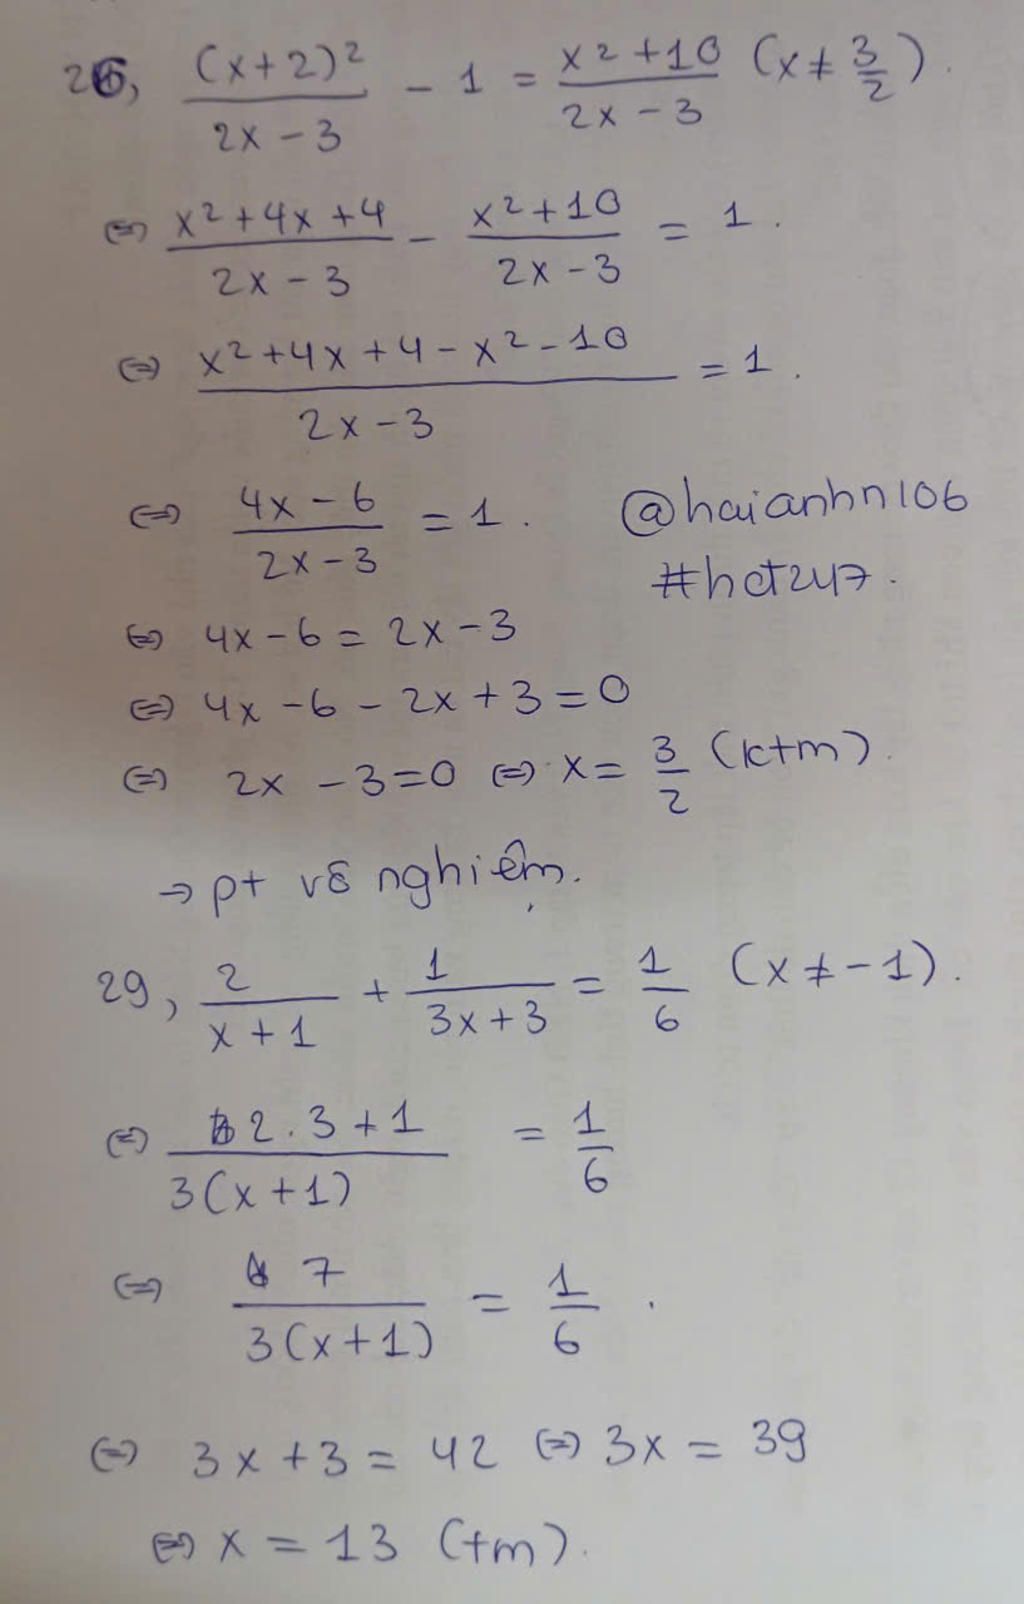 26, (x+2)²/(2x-3) - 1 = (x²+10)/(2x-3) (x ≠ 3/2).
⇔ (x²+4x+4)/(2x-3) - (x²+10)/(2x-3) = 1.
⇔ (x²+4x+4-x²-10)/(2x-3) = 1.
⇔ (4x-6)/(2x-3) = 1.
@haianhn106
#hct247.
⇔ 4x-6 = 2x-3
⇔ 4x-6-2x+3=0
⇔ 2x-3=0 ⇔ x = 3/2 (ktm).
→ pt vô nghiệm.
29, 2/(x+1) + 1/(3x+3) = 1/6 (x ≠ -1).
⇔ (2.3+1)/(3(x+1)) = 1/6
⇔ 7/(3(x+1)) = 1/6.
⇔ 3x+3 = 42 ⇔ 3x = 39
⇔ x = 13 (tm).